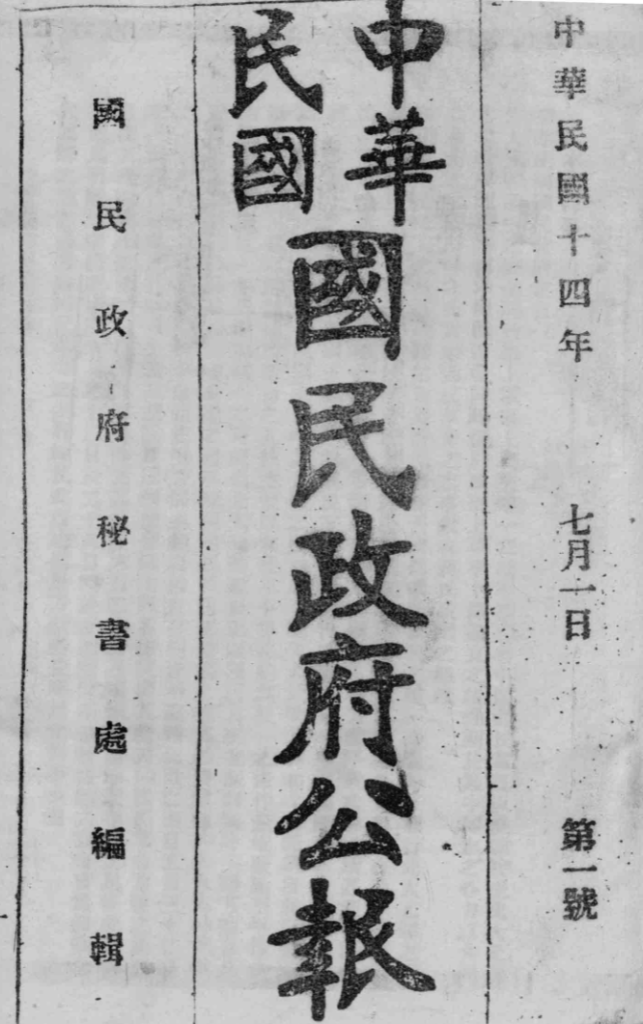 中華民國十四年 七月一日 第一號
中華民國
國民政府公報
國民政府秘書處編輯